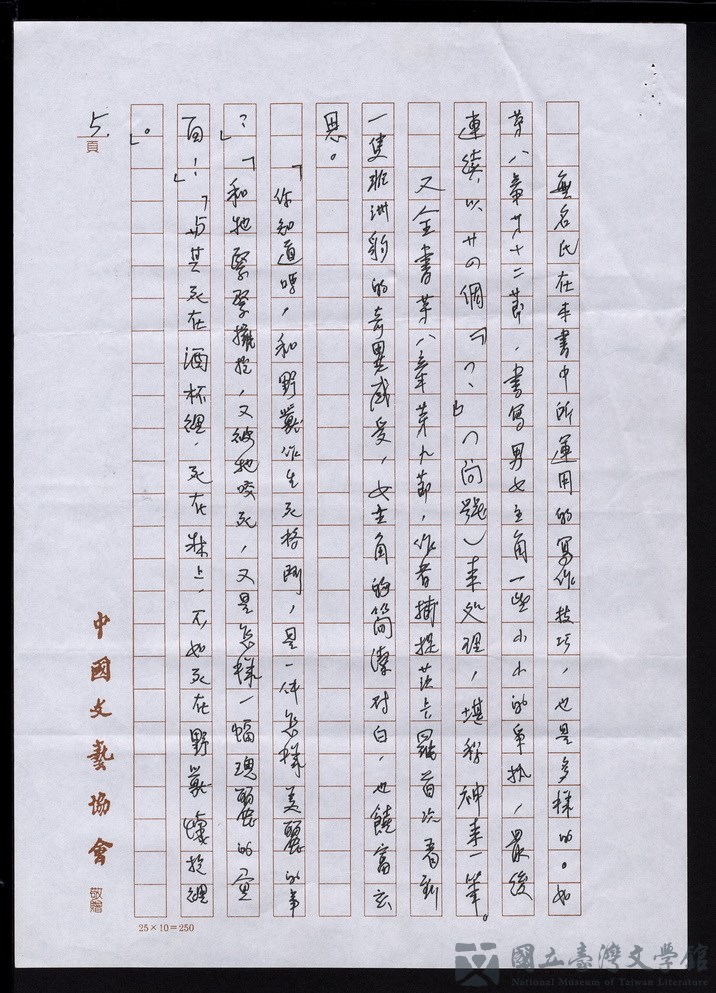 無名氏在本書中所運用的寫作技巧，也是多樣的。如
第八章廿十二節，書寫男女主角一些小小的爭執，最後
連續以廿四個「？、」（問號）來處理，堪稱神來一筆。
又全書第八章第九節，作者捕捉莎卡羅首次看到
一隻非洲豹的奇異感受，女主角的簡潔对白，也饒富玄
思。
「你知道嗎，和野獸作生死格鬥，是一件怎樣美麗的事
？」「和牠緊緊擁抱，又被牠咬死，又是怎樣一幅瑰麗的畫
面！」「與其死在酒杯裡，死在牀上，不如死在野獸懷抱裡
」。
5.頁
中國文藝協會
敬贈
25×10=250
國立臺灣文學館
National Museum of Taiwan Literature